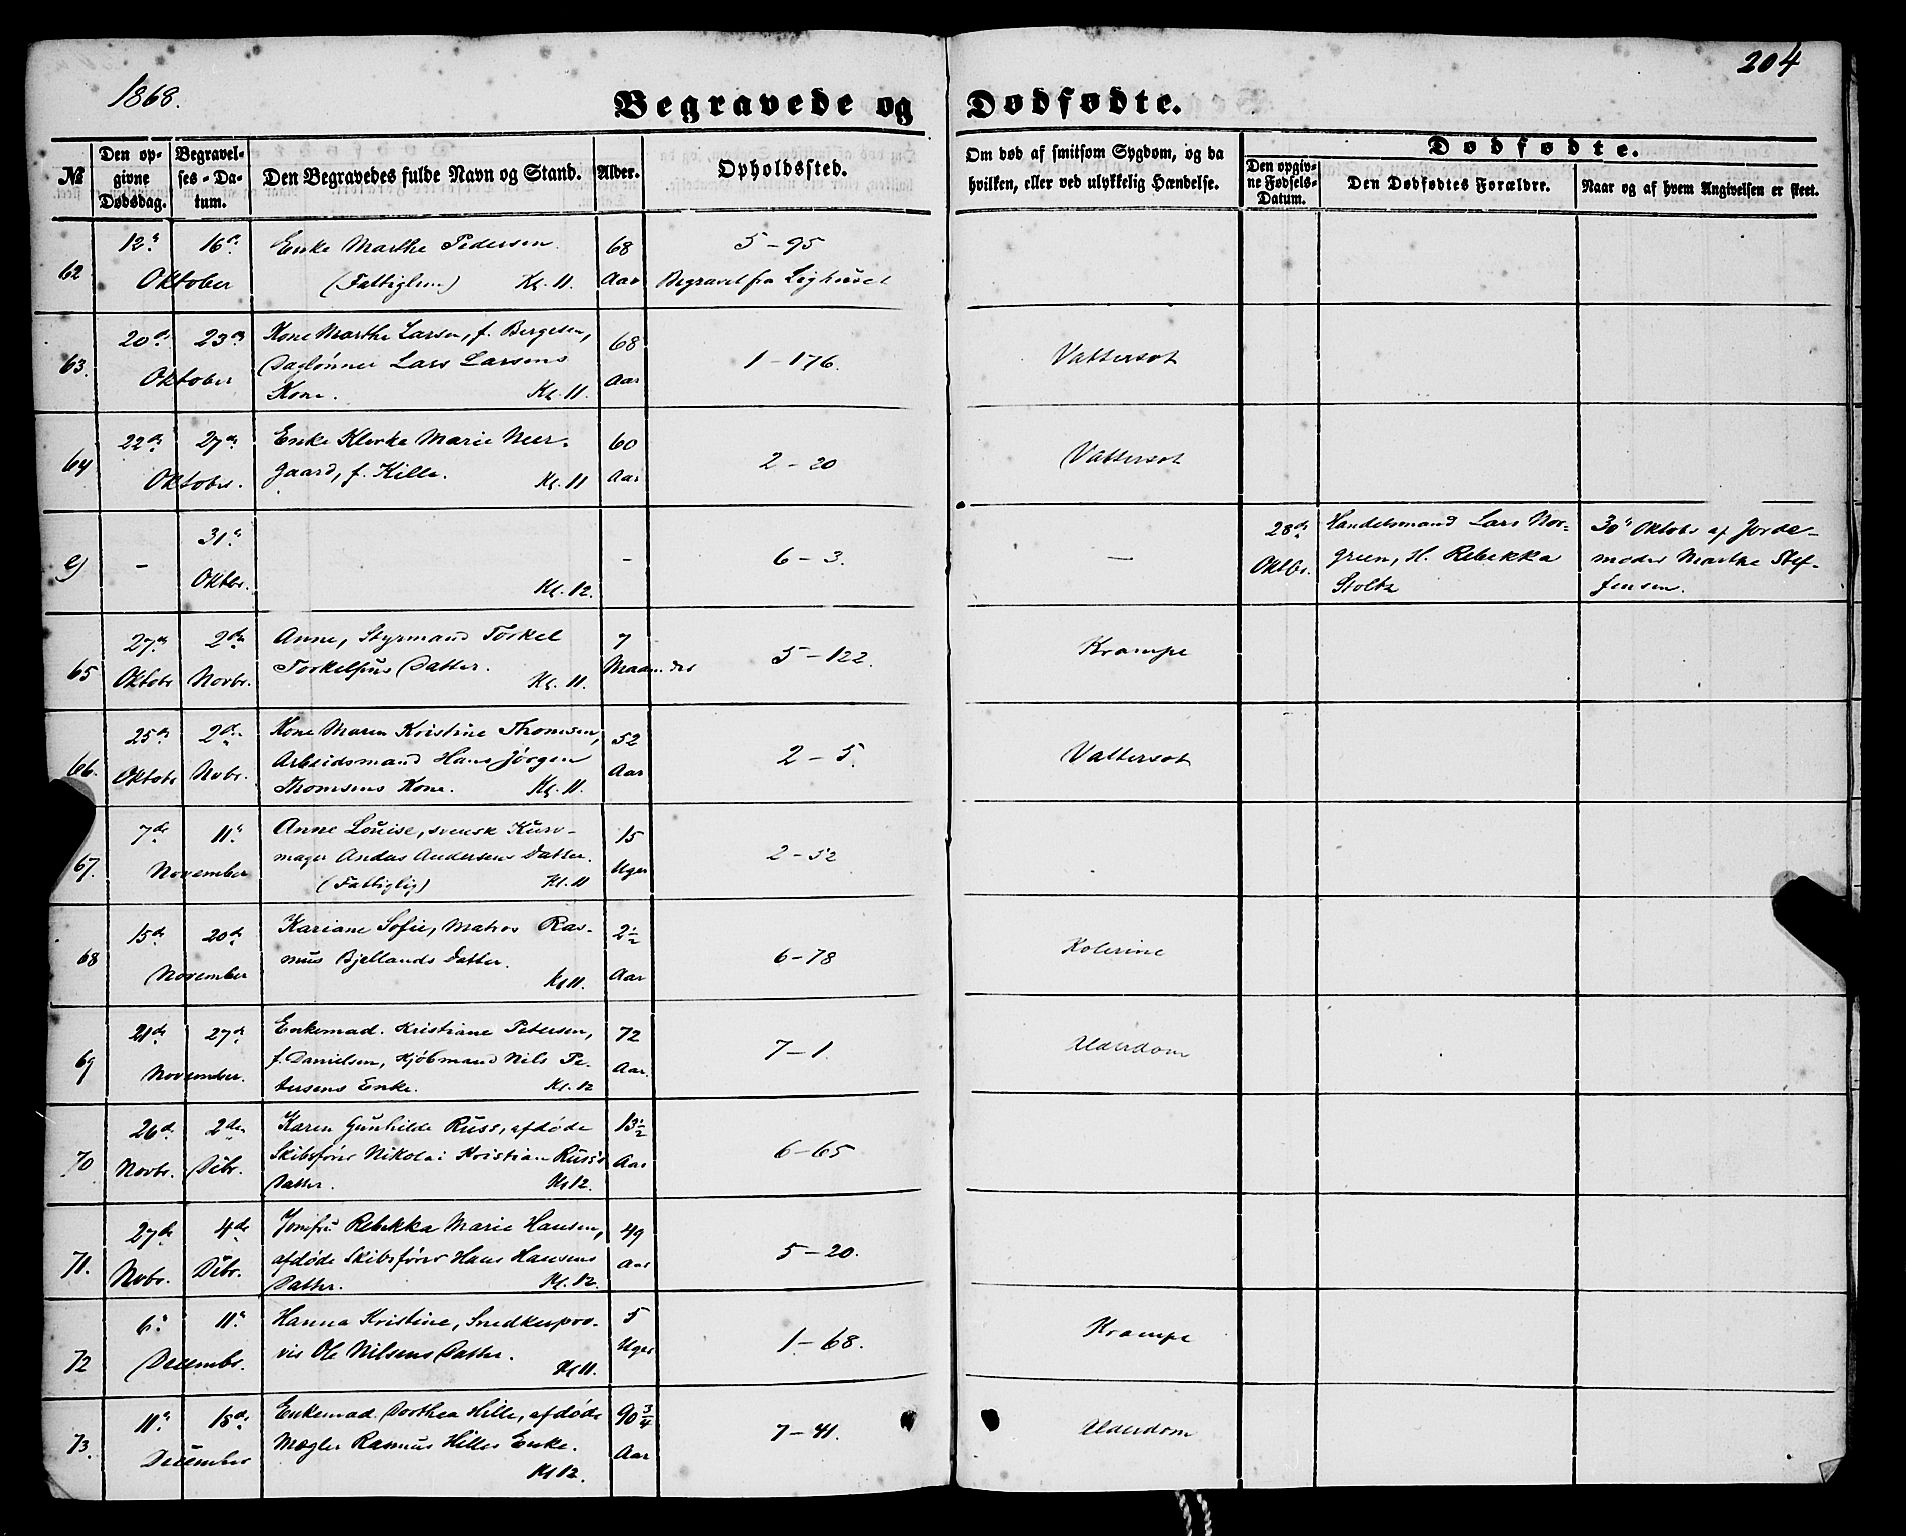 204
1868.
Begravede og Dødfødte.
№
Den opgivne Dødsdag.
Begravelses-Datum.
Den Begravedes fulde Navn og Stand.
Alder.
Opholdssted.
Om død af smitsom Sygdom, og da hvilken, eller ved ulykkelig Hændelse.
Dødfødte.
Den opgivne Fødsels-Datum.
Den Dødfødtes Forældre.
Naar og af hvem Angivelsen er skeet.
62
12te 16de
Oktober
Enke Marthe Pedersen
Kl. 11.
68
Aar
5 - 95
Begravet fra Lighuset
63.
20de 23de
Oktober
Kone Marthe Larsen, f. Bergesen,
Daglønner Lars Larsens
Kone. Kl. 11.
68
Aar
1 - 176.
Vattersot
64
22de 27de
Oktobr.
Enke Klerke Marie Neer-
gaard, f. Kille. Kl. 11
60
Aar
2 - 20
Vattersot
-
31te
Oktbr.
Kl. 12.
-
6 - 3.
—
28de
Oktbr.
Handelsmand Lars Nor-
green, H. Rebekka
Stoltz
30te Oktobr af Jorde-
moder Marthe Stef-
fensen.
65
27de Oktobr
2den Novbr.
Anne, Styrmand Torkel
Torkelsens Datter.
Kl. 11.
7
Maaneder
5 - 122.
Krampe
66.
25de Oktobr
2den Nvbr.
Kone Maren Kristine Thomsen,
Arbeidsmand Hans Jørgen
Thomsens Kone. Kl. 11.
52
Aar
2 - 5.
Vattersot
67.
7de 11te
November
Anne Louise, svensk Kurv-
mager Andas Andersens Datter.
(Fattiglig) Kl. 11
15
Uger
2 - 52
68
15de 20de
November
Kariane Sofie, Matros Ras-
mus Bjellands Datter.
Kl 11.
2½
Aar
6 - 78
Kolerine
69
21de 27de
November.
Enkemad. Kristiane Petersen,
f. Danielsen, Kjøbmand Nils Pe-
tersens Enke. Kl. 12
72
Aar.
7 - 1.
Alderdom
70
26de Novbr.
2den Dcbr.
Karen Gunhilde Russ, afdøde
Skibsfører Nikolai Kristian Russ's
Datter. Kl 12.
13½
Aar
6 - 65
71.
27de Nvbr.
4de Dcbr.
Jomfru Rebekka Marie Hansen,
afdøde Skibsfører Hans Hansens
Datter. Kl. 12.
49
Aar
5 - 20.
72
6te 11te
Decembr.
Hanna Kristine, Snedkersven-
Ole Nilsens Datter.
Kl 11.
5
Uger
1 - 68.
Krampe
73.
11te 18de
December
Enkemad. Dorthea Hille, afdøde
Mægler Rasmus Hilles Enke.
Kl 12.
90¾
Aar
7 - 41.
Alderdom